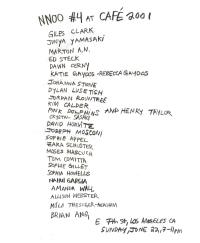 NNOO #4 AT CAFÉ 2001
GILES CLARK
JINYA YAMASAKI
MARTON A.N.
ED STECK
DAWN CERNY
KATIE GAYDOS-REBECCA GAYDOS
JOHANNA STONE
DYLAN LUSTISH
JORDAN ROUNTREE
KIM CALDER
PINK DOLPHINS AND HENRY TAYLOR
CRYSTAL SASAKI
DAVID HORVITZ
JOSEPH MOSCONI
SOPHIE APPEL
ZARA SCHUSTER
MOSES MARCUCH
TOM COMITTA
SOPHIE GILLET
SOPHIA HOWELLS
NAIMI GARCIA
AMANDA WALL
ALLISON WEBSTER
MILO
BRIAN ANG,
E 7TH ST, LOS ANGELES CA
SUNDAY, JUNE 22, 7-11PM